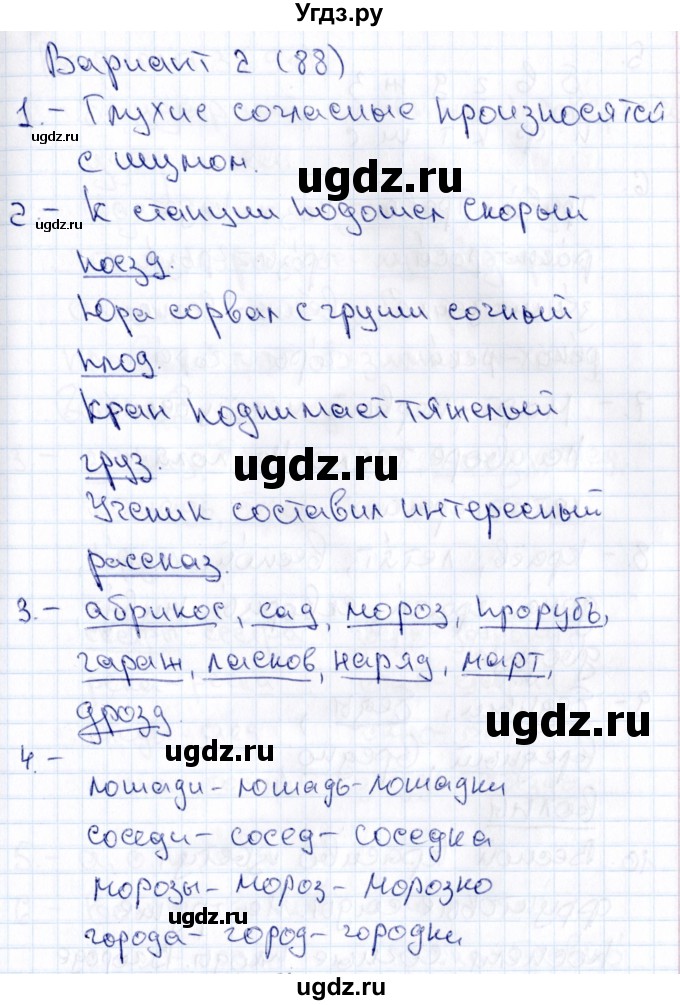 Угдз.ру
Вариант 2 (88)
1.- Глухие согласные произносятся
ugdz.ru
с шумом.
ugdz.ru
2.- К станции подошел скорый
ugdz.ru
поезд.
Юра сорвал с груши сочный
плод.
Кран поднимает тяжелый
груз.
ugdz.ru
Ученик составил интересный
рассказ.
3.- абрикос, сад, мороз, прорубь,
гараж, ласков, наряд, март,
дрозд.
ugdz.ru
ugdz.ru
4.-
лошади - лошадь - лошадки
соседи - сосед - соседка
морозы - мороз - морозко
ugdz.ru
города - город - городки